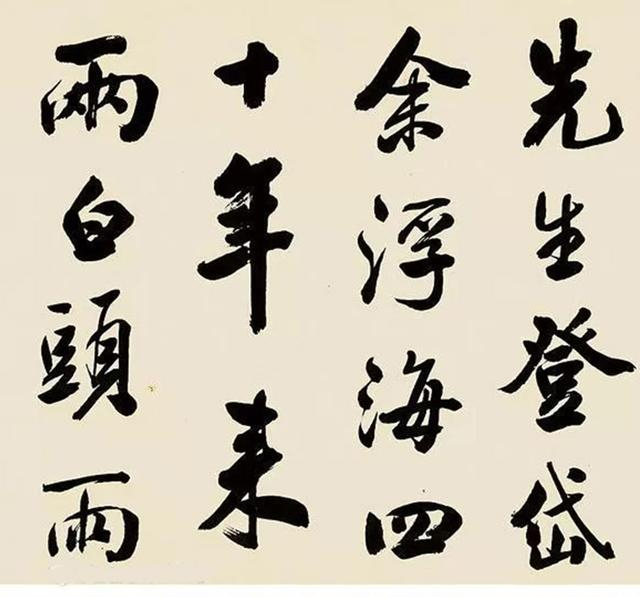 先生登岱
余浮海四
十年来
兩白頭雨